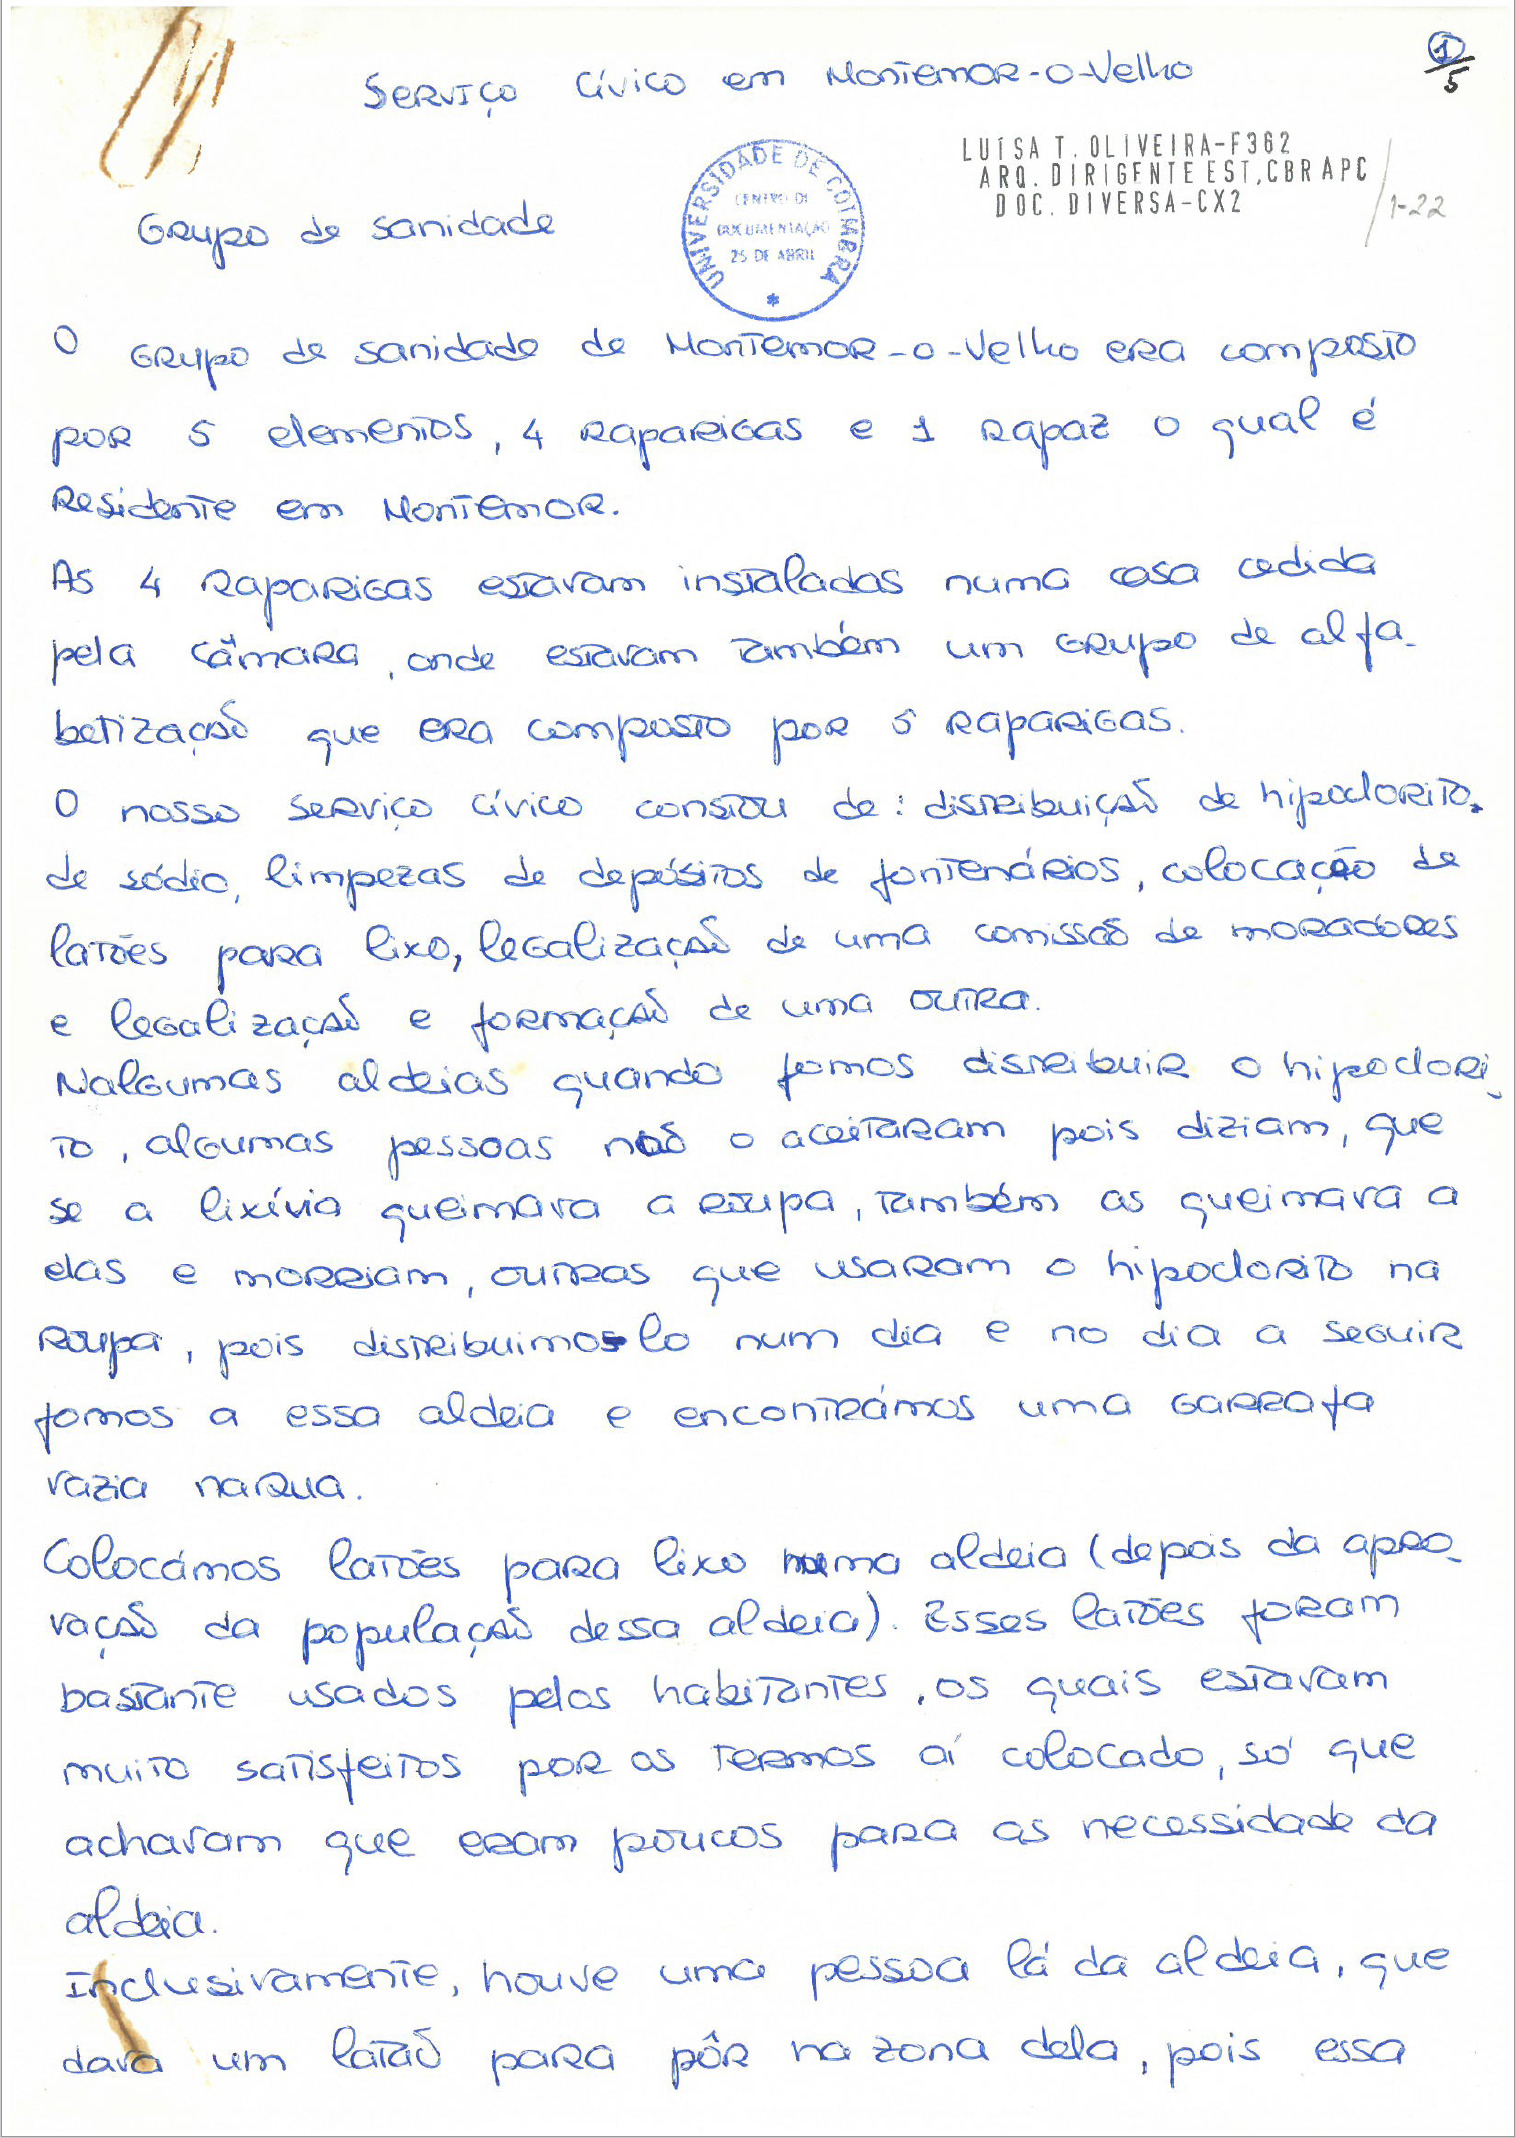 1/5
Serviço Cívico em Montemor-o-Velho
LUÍSA T. OLIVEIRA-F362
ARQ. DIRIGENTE EST,CBR APC
DOC. DIVERSA-CX2
1-22
UNIVERSIDADE DE COIMBRA
CENTRO DE
DOCUMENTAÇÃO
25 DE ABRIL
*
Grupo de sanidade
O Grupo de sanidade de Montemor-o-Velho era composto
por 5 elementos, 4 raparigas e 1 rapaz o qual é
Residente em Montemor.
As 4 raparigas estavam instaladas numa casa cedida
pela câmara, onde estavam também um grupo de alfa-
betização que era composto por 5 raparigas.
O nosso serviço cívico constou de: distribuição de hipoclorito
de sódio, limpezas de depósitos de fontenários, colocação de
latões para lixo, legalização de uma comissão de moradores
e legalização e formação de uma outra.
Nalgumas aldeias quando fomos distribuir o hipoclori-
to, algumas pessoas não o aceitaram pois diziam, que
se a lixívia queimava a roupa, também as queimava a
elas e morriam, outras que usaram o hipoclorito na
roupa, pois distribuimos-lo num dia e no dia a seguir
fomos a essa aldeia e encontrámos uma garrafa
vazia na rua.
Colocámos latões para lixo numa aldeia (depois da apro-
vação da população dessa aldeia). Esses latões foram
bastante usados pelos habitantes, os quais estavam
muito satisfeitos por os termos aí colocado, só que
achavam que eram poucos para as necessidade da
aldeia.
Inclusivamente, houve uma pessoa lá da aldeia, que
dava um latão para pôr na zona dela, pois essa